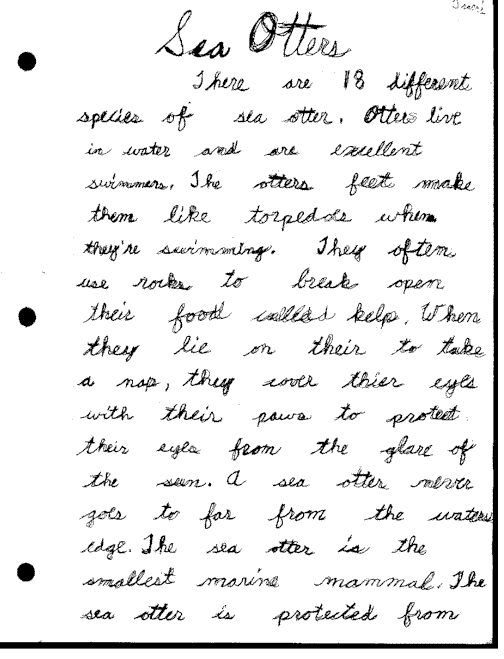 Sea Otters
There are 18 different
species of sea otter. Otters live
in water and are excellent
swimmers. The otters feet make
them like torpedos when
they're swimming. They often
use rocks to break open
their food called kelp. When
they lie on their to take
a nap, they cover thier eyes
with their paws to protect
their eyes from the glare of
the sun. A sea otter never
goes to far from the waters
edge. The sea otter is the
smallest marine mammal. The
sea otter is protected from